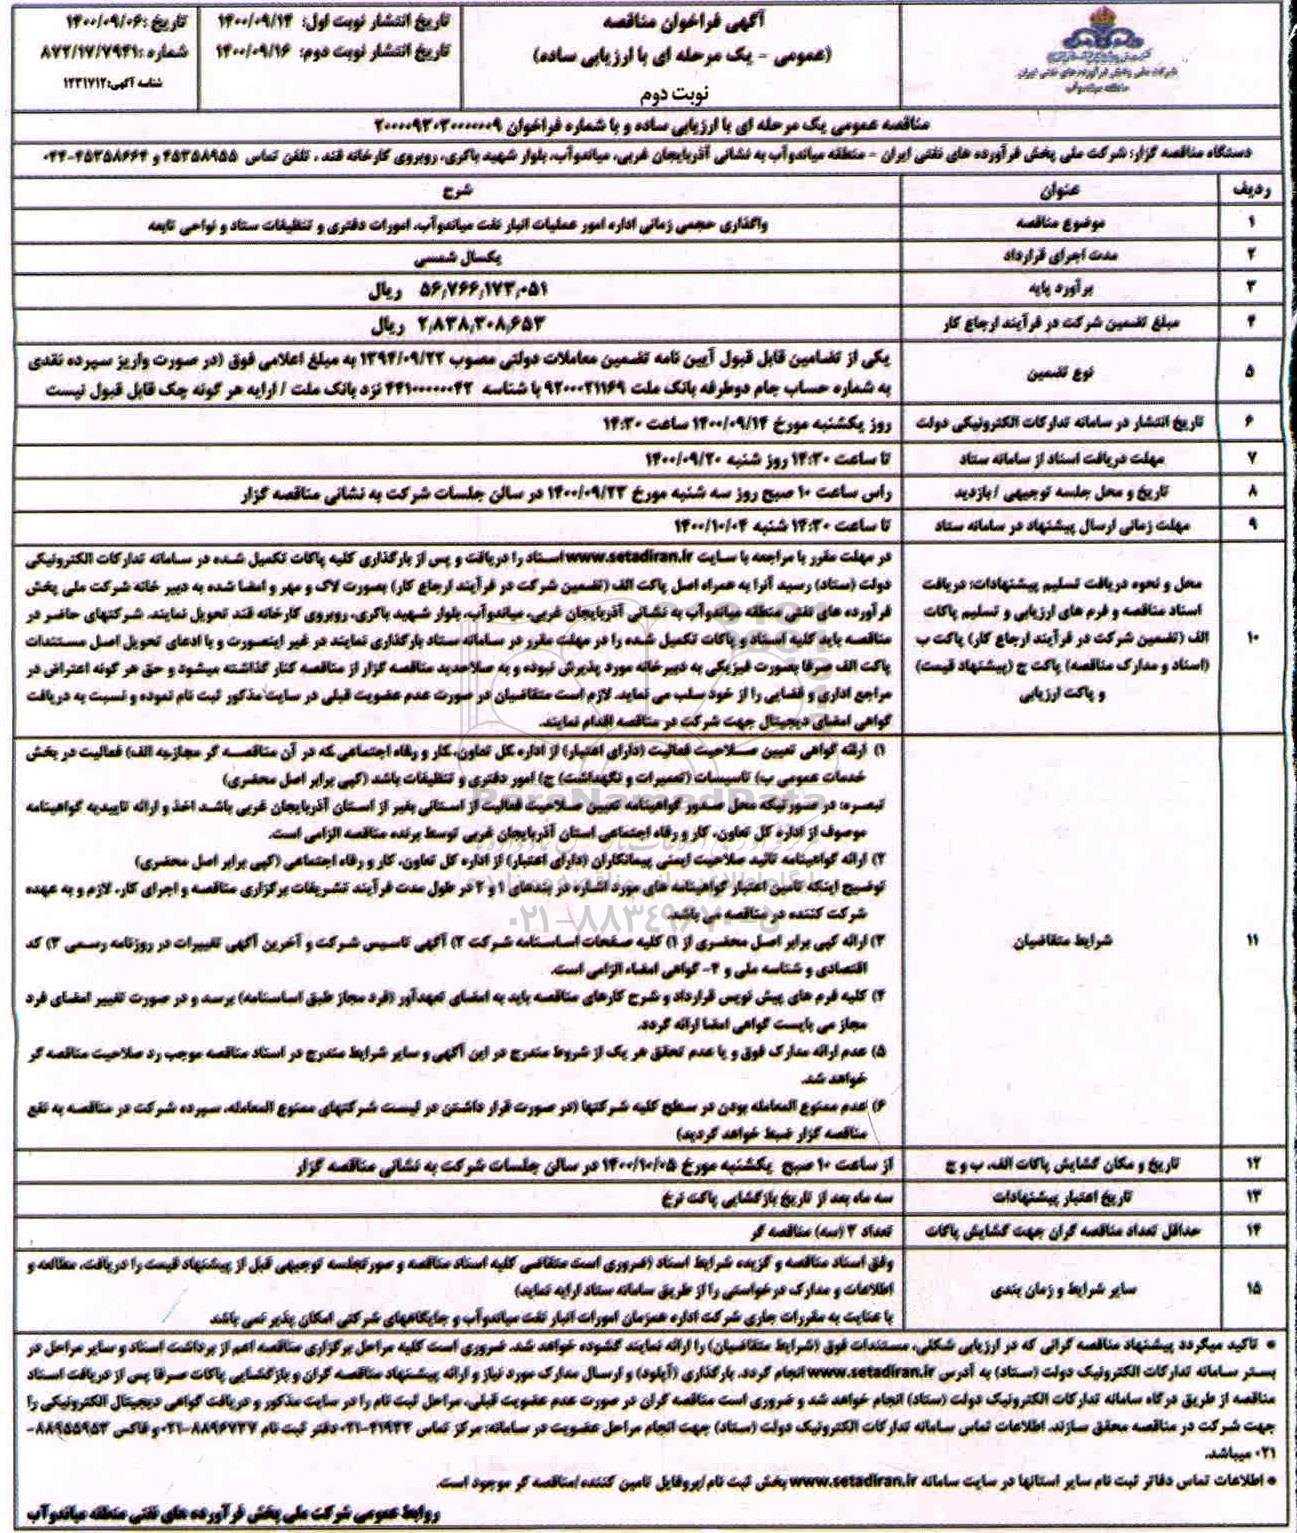 شرکت ملی پخش فرآورده های نفتی ایران
منطقه میاندوآب
آگهی فراخوان مناقصه
(عمومی - یک مرحله ای با ارزیابی ساده)
نوبت دوم
تاریخ انتشار نوبت اول: ۱۴۰۰/۰۹/۱۴
تاریخ انتشار نوبت دوم: ۱۴۰۰/۰۹/۱۶
تاریخ :۱۴۰۰/۰۹/۰۶
شماره :۸۷۲/۱۷/۷۹۴۱
شناسه آگهی:۱۲۳۱۷۱۲
مناقصه عمومی یک مرحله ای با ارزیابی ساده و با شماره فراخوان ۲۰۰۰۰۹۳۰۳۰۰۰۰۰۰۹
دستگاه مناقصه گزار: شرکت ملی پخش فرآورده های نفتی ایران - منطقه میاندوآب به نشانی آذربایجان غربی، میاندوآب، بلوار شهید باکری، روبروی کارخانه قند ، تلفن تماس ۴۵۳۵۸۹۵۵ و ۴۵۳۵۸۶۶۴-۰۴۴
ردیف عنوان شرح
۱ موضوع مناقصه واگذاری حجمی زمانی اداره امور عملیات انبار نفت میاندوآب، امورات دفتری و تنظیفات ستاد و نواحی تابعه
۲ مدت اجرای قرارداد یکسال شمسی
۳ برآورد پایه ۵۶,۷۶۶,۱۷۳,۰۵۱ ریال
۴ مبلغ تضمین شرکت در فرآیند ارجاع کار ۲,۸۳۸,۳۰۸,۶۵۳ ریال
۵ نوع تضمین یکی از تضامین قابل قبول آیین نامه تضمین معاملات دولتی مصوب ۱۳۹۴/۰۹/۲۲ به مبلغ اعلامی فوق (در صورت واریز سپرده نقدی
به شماره حساب جام دوطرفه بانک ملت ۹۲۰۰۰۲۱۱۶۹ با شناسه ۴۴۱۰۰۰۰۰۰۴۲ نزد بانک ملت / ارایه هر گونه چک قابل قبول نیست
۶ تاریخ انتشار در سامانه تدارکات الکترونیکی دولت روز یکشنبه مورخ ۱۴۰۰/۰۹/۱۴ ساعت ۱۴:۳۰
۷ مهلت دریافت اسناد از سامانه ستاد تا ساعت ۱۴:۳۰ روز شنبه ۱۴۰۰/۰۹/۲۰
۸ تاریخ و محل جلسه توجیهی / بازدید راس ساعت ۱۰ صبح روز سه شنبه مورخ ۱۴۰۰/۰۹/۲۳ در سالن جلسات شرکت به نشانی مناقصه گزار
۹ مهلت زمانی ارسال پیشنهاد در سامانه ستاد تا ساعت ۱۴:۳۰ شنبه ۱۴۰۰/۱۰/۰۴
۱۰ محل و نحوه دریافت تسلیم پیشنهادات: دریافت
اسناد مناقصه و فرم های ارزیابی و تسلیم پاکات
الف (تضمین شرکت در فرآیند ارجاع کار) پاکت ب
(اسناد و مدارک مناقصه) پاکت ج (پیشنهاد قیمت)
و پاکت ارزیابی
در مهلت مقرر با مراجعه با سایت www.setadiran.ir اسناد را دریافت و پس از بارگذاری کلیه پاکات تکمیل شده در سامانه تدارکات الکترونیکی
دولت (ستاد) رسید آنرا به همراه اصل پاکت الف (تضمین شرکت در فرآیند ارجاع کار) بصورت لاک و مهر و امضا شده به دبیر خانه شرکت ملی پخش
فرآورده های نفتی منطقه میاندوآب به نشانی آذربایجان غربی، میاندوآب، بلوار شهید باکری، روبروی کارخانه قند تحویل نمایند. شرکتهای حاضر در
مناقصه باید کلیه اسناد و پاکات تکمیل شده را در مهلت مقرر در سامانه ستاد بارگذاری نمایند در غیر اینصورت و با ادعای تحویل اصل مستندات
پاکت الف صرفا بصورت فیزیکی به دبیرخانه مورد پذیرش نبوده و به صلاحدید مناقصه گزار از مناقصه کنار گذاشته میشود و حق هر گونه اعتراض در
مراجع اداری و قضایی را از خود سلب می نماید. لازم است متقاضیان در صورت عدم عضویت قبلی در سایت مذکور ثبت نام نموده و نسبت به دریافت
گواهی امضای دیجیتال جهت شرکت در مناقصه اقدام نمایند.
۱۱ شرایط متقاضیان
۱) ارائه گواهی تعیین صلاحیت فعالیت (دارای اعتبار) از اداره کل تعاون، کار و رفاه اجتماعی که در آن مناقصه گر مجاز به الف) فعالیت در بخش
خدمات عمومی ب) تاسیسات (تعمیرات و نگهداشت) ج) امور دفتری و تنظیفات باشد (کپی برابر اصل محضری)
تبصره: در صورتیکه محل صدور گواهینامه تعیین صلاحیت فعالیت از استانی بغیر از استان آذربایجان غربی باشد اخذ و ارائه تاییدیه گواهینامه
موصوف از اداره کل تعاون، کار و رفاه اجتماعی استان آذربایجان غربی توسط برنده مناقصه الزامی است.
۲) ارائه گواهینامه تائید صلاحیت ایمنی پیمانکاران (دارای اعتبار) از اداره کل تعاون، کار و رفاه اجتماعی (کپی برابر اصل محضری)
توضیح اینکه تامین اعتبار گواهینامه های مورد اشاره در بندهای ۱ و ۲ در طول مدت فرآیند تشریفات برگزاری مناقصه و اجرای کار، لازم و به عهده
شرکت کننده در مناقصه می باشد.
۳) ارائه کپی برابر اصل محضری از ۱) کلیه صفحات اساسنامه شرکت ۲) آگهی تاسیس شرکت و آخرین آگهی تغییرات در روزنامه رسمی ۳) کد
اقتصادی و شناسه ملی و ۴- گواهی امضاء الزامی است.
۴) کلیه فرم های پیش نویس قرارداد و شرح کارهای مناقصه باید به امضای تعهدآور (فرد مجاز طبق اساسنامه) برسد و در صورت تغییر امضای فرد
مجاز می بایست گواهی امضا ارائه گردد.
۵) عدم ارائه مدارک فوق و یا عدم تحقق هر یک از شروط مندرج در این آگهی و سایر شرایط مندرج در اسناد مناقصه موجب رد صلاحیت مناقصه گر
خواهد شد.
۶) عدم ممنوع المعامله بودن در سطح کلیه شرکتها (در صورت قرار داشتن در لیست شرکتهای ممنوع المعامله، سپرده شرکت در مناقصه به نفع
مناقصه گزار ضبط خواهد گردید)
۱۲ تاریخ و مکان گشایش پاکات الف، ب و ج از ساعت ۱۰ صبح یکشنبه مورخ ۱۴۰۰/۱۰/۰۵ در سالن جلسات شرکت به نشانی مناقصه گزار
۱۳ تاریخ اعتبار پیشنهادات سه ماه بعد از تاریخ بازگشایی پاکت نرخ
۱۴ حداقل تعداد مناقصه گران جهت گشایش پاکات تعداد ۳ (سه) مناقصه گر
۱۵ سایر شرایط و زمان بندی
وفق اسناد مناقصه و گزیده شرایط اسناد (ضروری است متقاضی کلیه اسناد مناقصه و صورتجلسه توجیهی قبل از پیشنهاد قیمت را دریافت، مطالعه و
اطلاعات و مدارک درخواستی را از طریق سامانه ستاد ارایه نماید)
با عنایت به مقررات جاری شرکت اداره همزمان امورات انبار نفت میاندوآب و جایگاههای شرکتی امکان پذیر نمی باشد
* تاکید میگردد پیشنهاد مناقصه گرانی که در ارزیابی شکلی، مستندات فوق (شرایط متقاضیان) را ارائه نمایند گشوده خواهد شد. ضروری است کلیه مراحل برگزاری مناقصه اعم از برداشت اسناد و سایر مراحل در
بستر سامانه تدارکات الکترونیک دولت (ستاد) به آدرس www.setadiran.ir انجام گردد. بارگذاری (آپلود) و ارسال مدارک مورد نیاز و ارائه پیشنهاد مناقصه گران و بازگشایی پاکات صرفا پس از دریافت اسناد
مناقصه از طریق درگاه سامانه تدارکات الکترونیک دولت (ستاد) انجام خواهد شد و ضروری است مناقصه گران در صورت عدم عضویت قبلی، مراحل ثبت نام را در سایت مذکور و دریافت گواهی دیجیتال الکترونیکی را
جهت شرکت در مناقصه محقق سازند. اطلاعات تماس سامانه تدارکات الکترونیک دولت (ستاد) جهت انجام مراحل عضویت در سامانه: مرکز تماس ۴۱۹۳۴-۰۲۱ دفتر ثبت نام ۸۸۹۶۷۳۷-۰۲۱ و فاکس ۸۸۹۵۵۹۵۳-
۰۲۱ میباشد.
* اطلاعات تماس دفاتر ثبت نام سایر استانها در سایت سامانه www.setadiran.ir بخش ثبت نام /پروفایل تامین کننده /مناقصه گر موجود است.
روابط عمومی شرکت ملی پخش فرآورده های نفتی منطقه میاندوآب
ParsNamadData